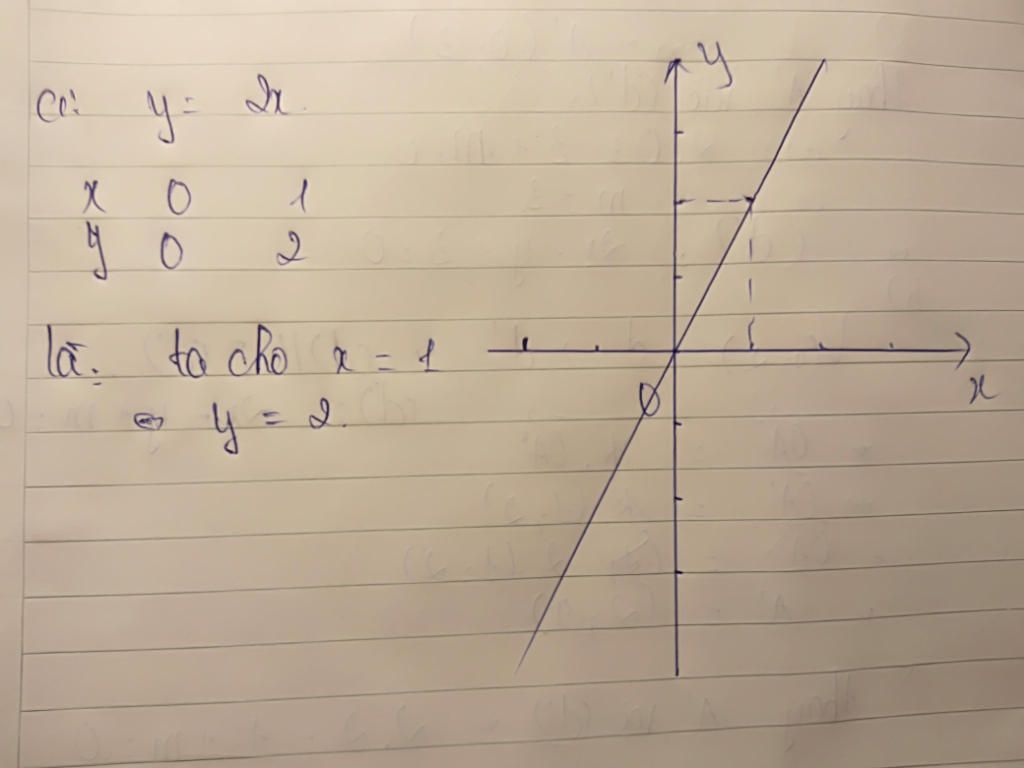 y = 2x.
x 0 1
y 0 2
là: ta cho x = 1
⇔ y = 2.
y
O
x